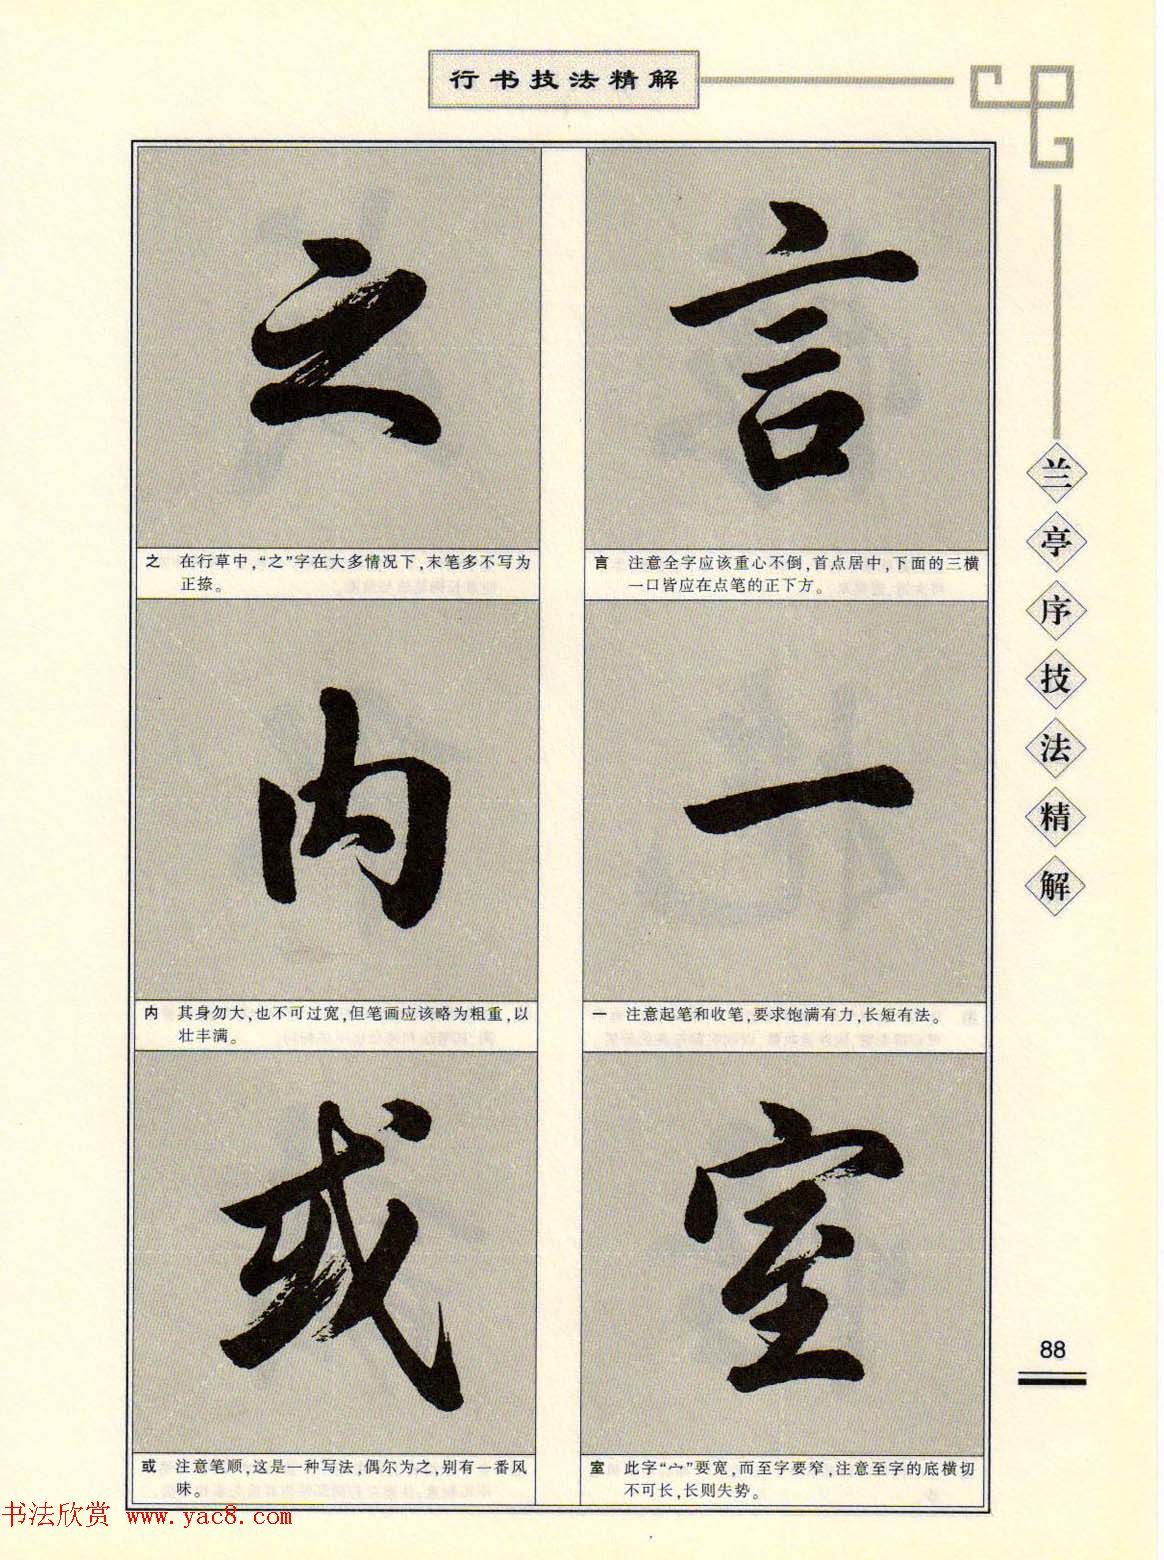 行书技法精解
兰亭序技法精解
言
言 注意全字应该重心不倒，首点居中，下面的三横
一口皆应在点笔的正下方。
一
一 注意起笔和收笔，要求饱满有力，长短有法。
室
室 此字“宀”要宽，而至字要窄，注意至字的底横切
不可长，长则失势。
之
之 在行草中，“之”字在大多情况下，末笔多不写为
正捺。
内
内 其身勿大，也不可过宽，但笔画应该略为粗重，以
壮丰满。
或
或 注意笔顺，这是一种写法，偶尔为之，别有一番风
味。
88
书法欣赏 www.yac8.com